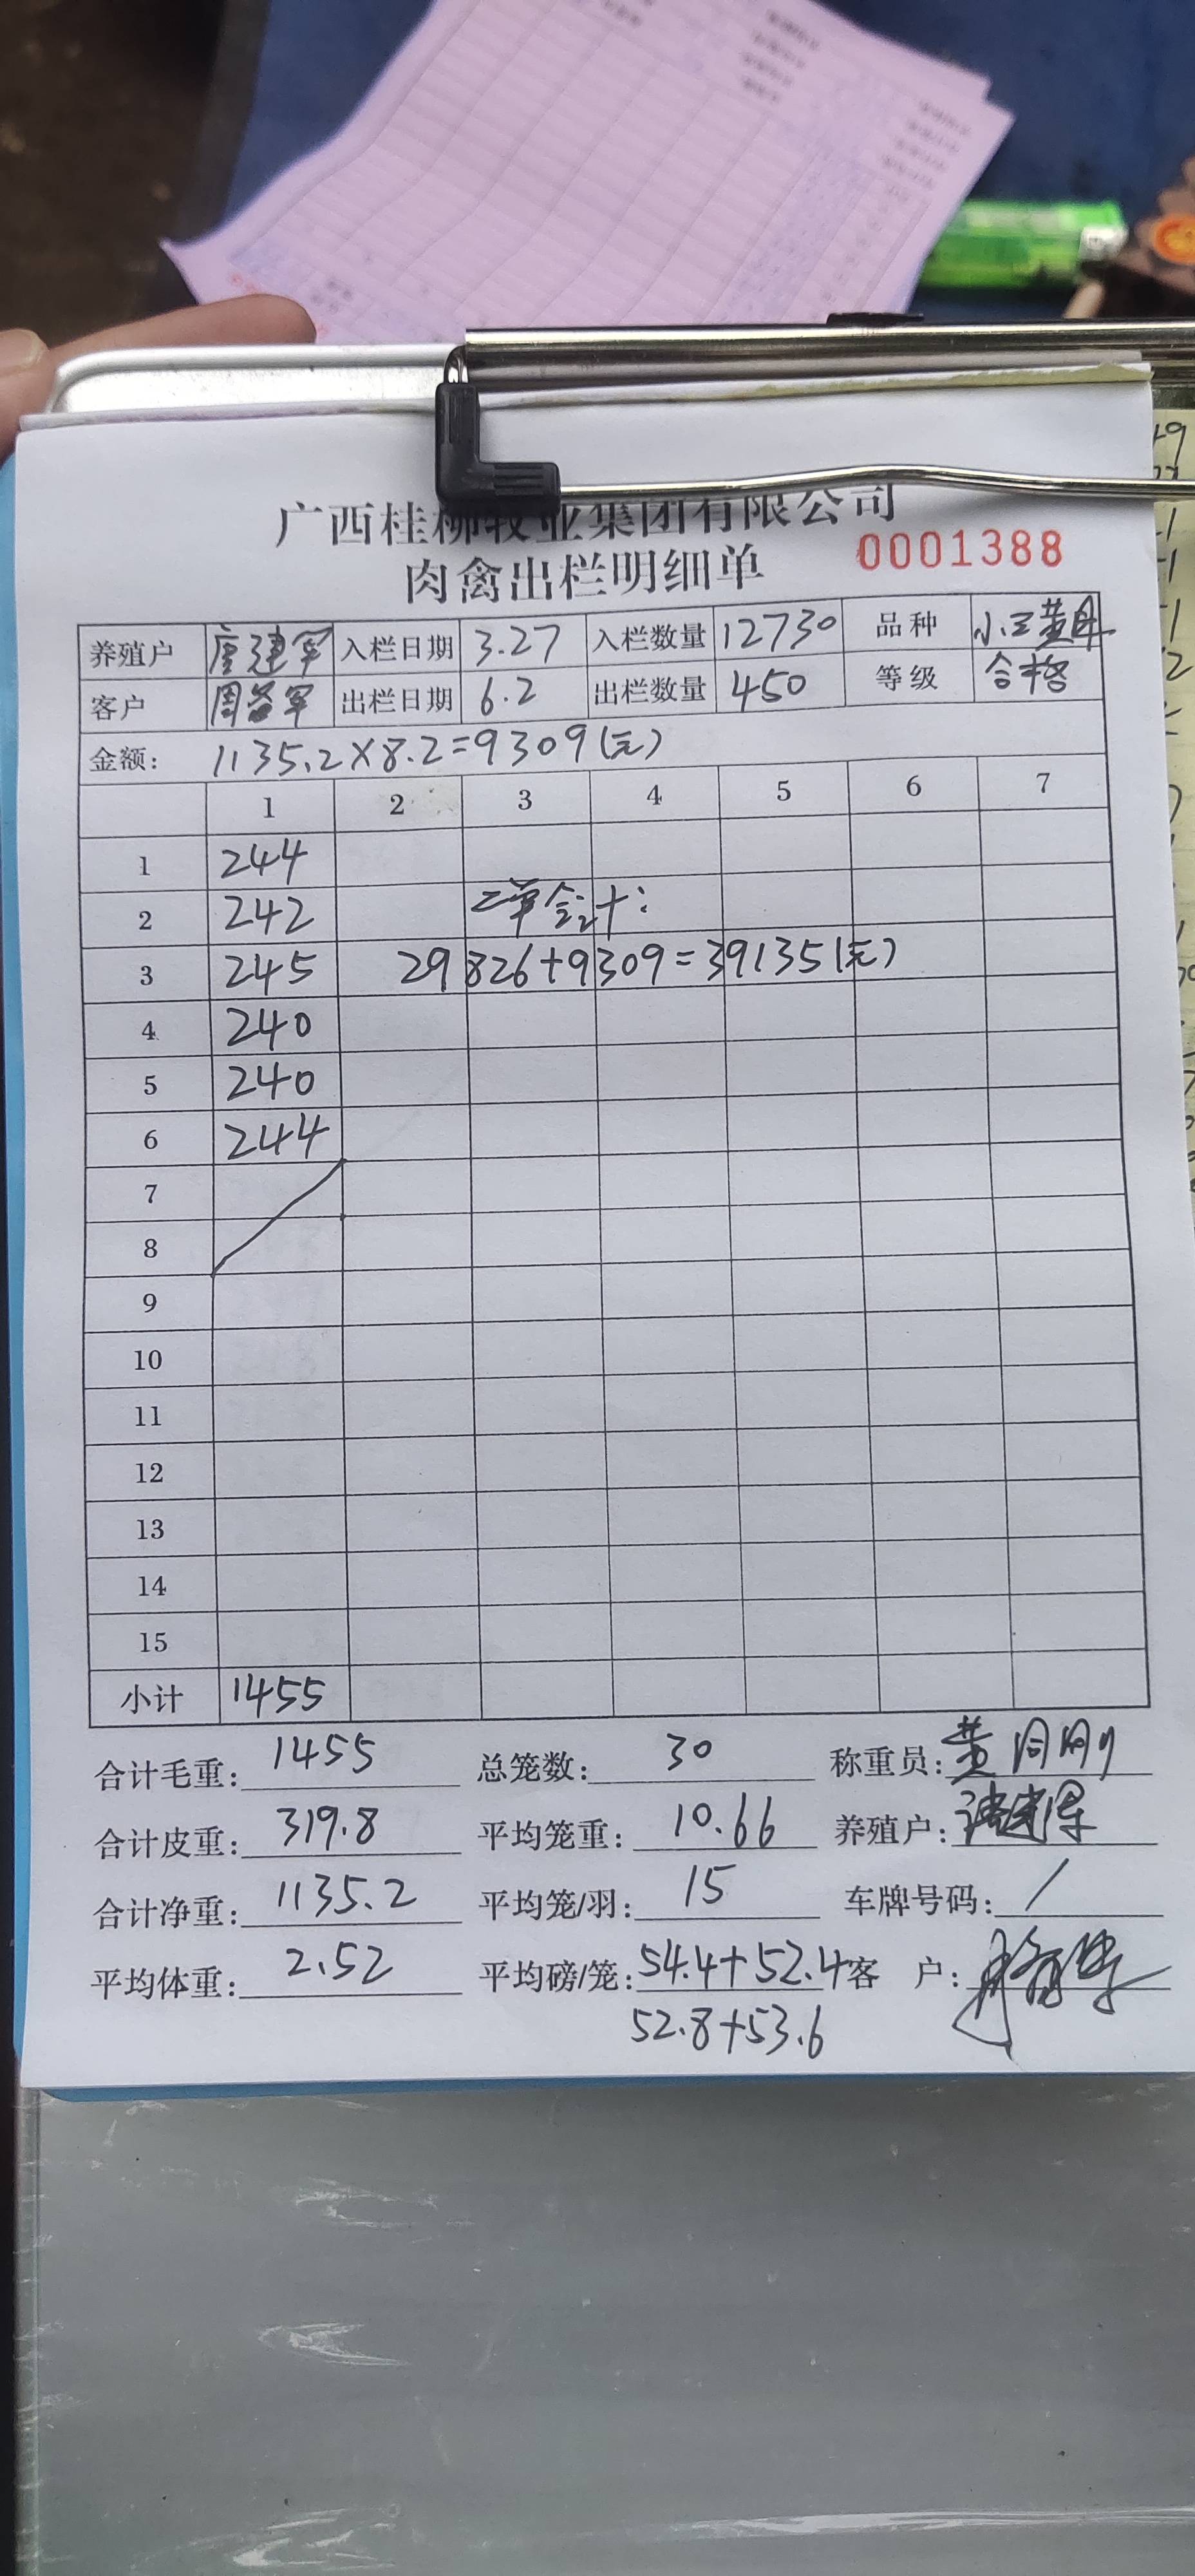 广西桂柳牧业集团有限公司
肉禽出栏明细单 0001388
养殖户 唐建军 入栏日期 3.27 入栏数量 12730 品种 小三黄
客户 周 军 出栏日期 6.2 出栏数量 450 等级 合格
金额: 1135.2×8.2=9309(元)
1 2 3 4 5 6 7
1 244
2 242 二单合计:
3 245 29826+9309=39135(元)
4 240
5 240
6 244
7
8
9
10
11
12
13
14
15
小计 1455
合计毛重: 1455 总笼数: 30 称重员: 黄
合计皮重: 319.8 平均笼重: 10.66 养殖户:
合计净重: 1135.2 平均笼/羽: 15 车牌号码: /
平均体重: 2.52 平均磅/笼: 54.4+52.4 客户:
52.8+53.6